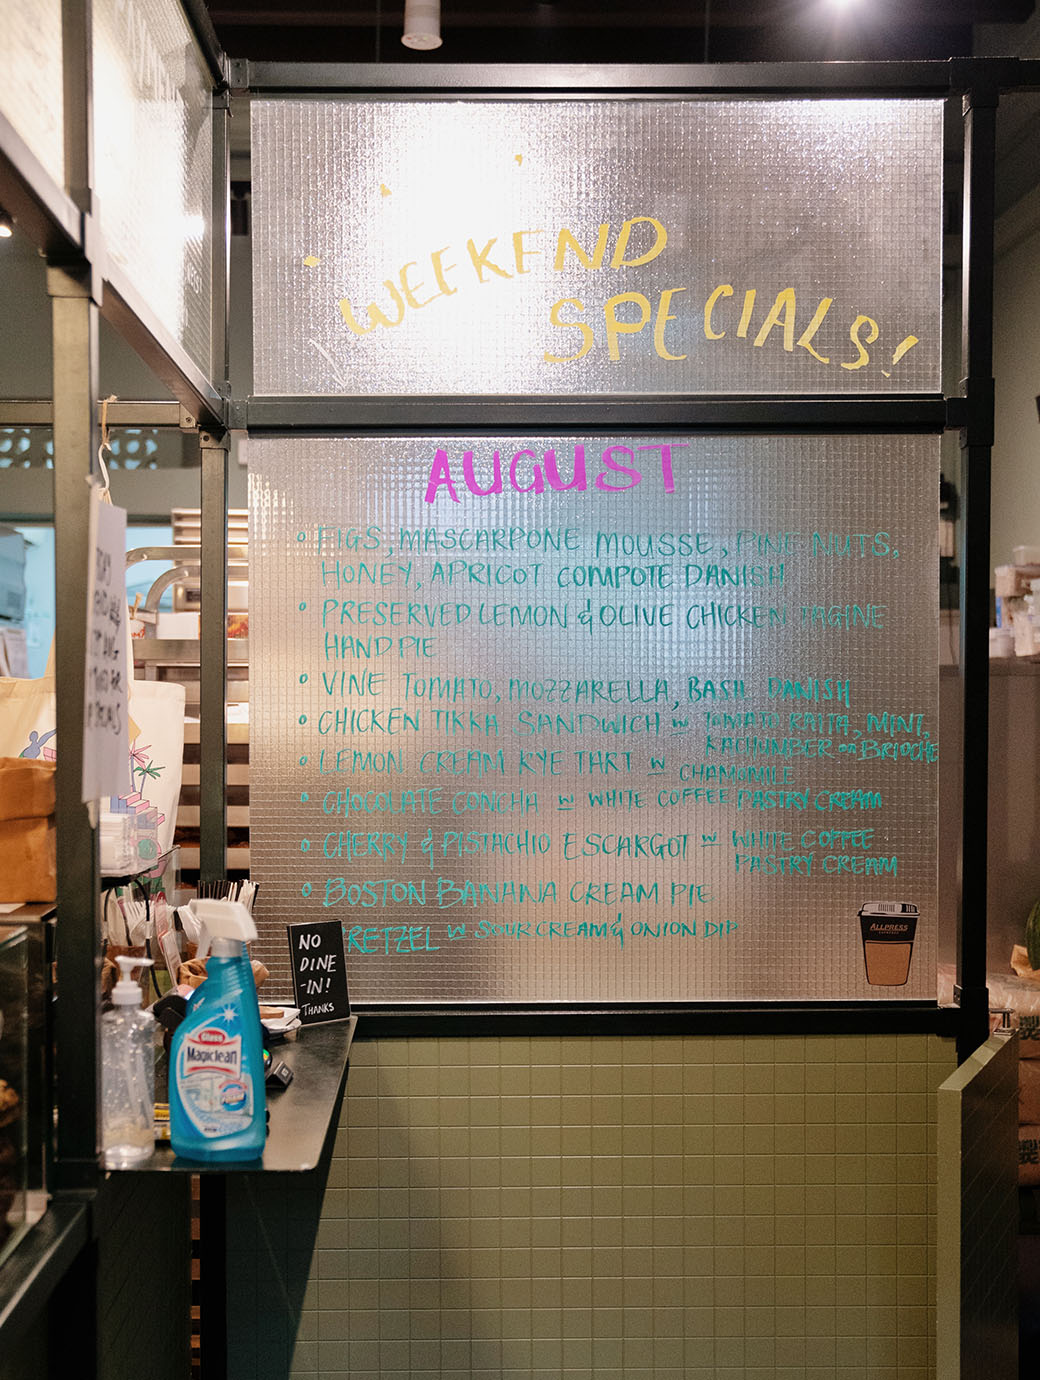 WEEKEND
SPECIALS!
AUGUST
FIGS, MASCARPONE MOUSSE, PINE NUTS,
HONEY, APRICOT COMPOTE DANISH
PRESERVED LEMON & OLIVE CHICKEN TAGINE
HAND PIE
VINE TOMATO, MOZZARELLA, BASIL DANISH
CHICKEN TIKKA SANDWICH w TOMATO RAITA, MINT,
KACHUMBER on BRIOCHE
LEMON CREAM RYE TART w
CHAMOMILE
CHOCOLATE CONCHA w WHITE COFFEE PASTRY CREAM
CHERRY & PISTACHIO ESCARGOT w WHITE COFFEE
PASTRY CREAM
BOSTON BANANA CREAM PIE
PRETZEL w SOUR CREAM & ONION DIP
ALLPRESS
NO
DINE
-IN!
THANKS
Glass
Magiclean